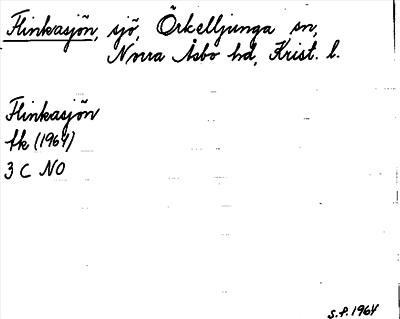 Flinkasjön, sjö, Örkelljunga sn,
Norra Åsbo hd, Krist. l.
Flinkasjön
fk (1964)
3 C NO
S.F. 1964